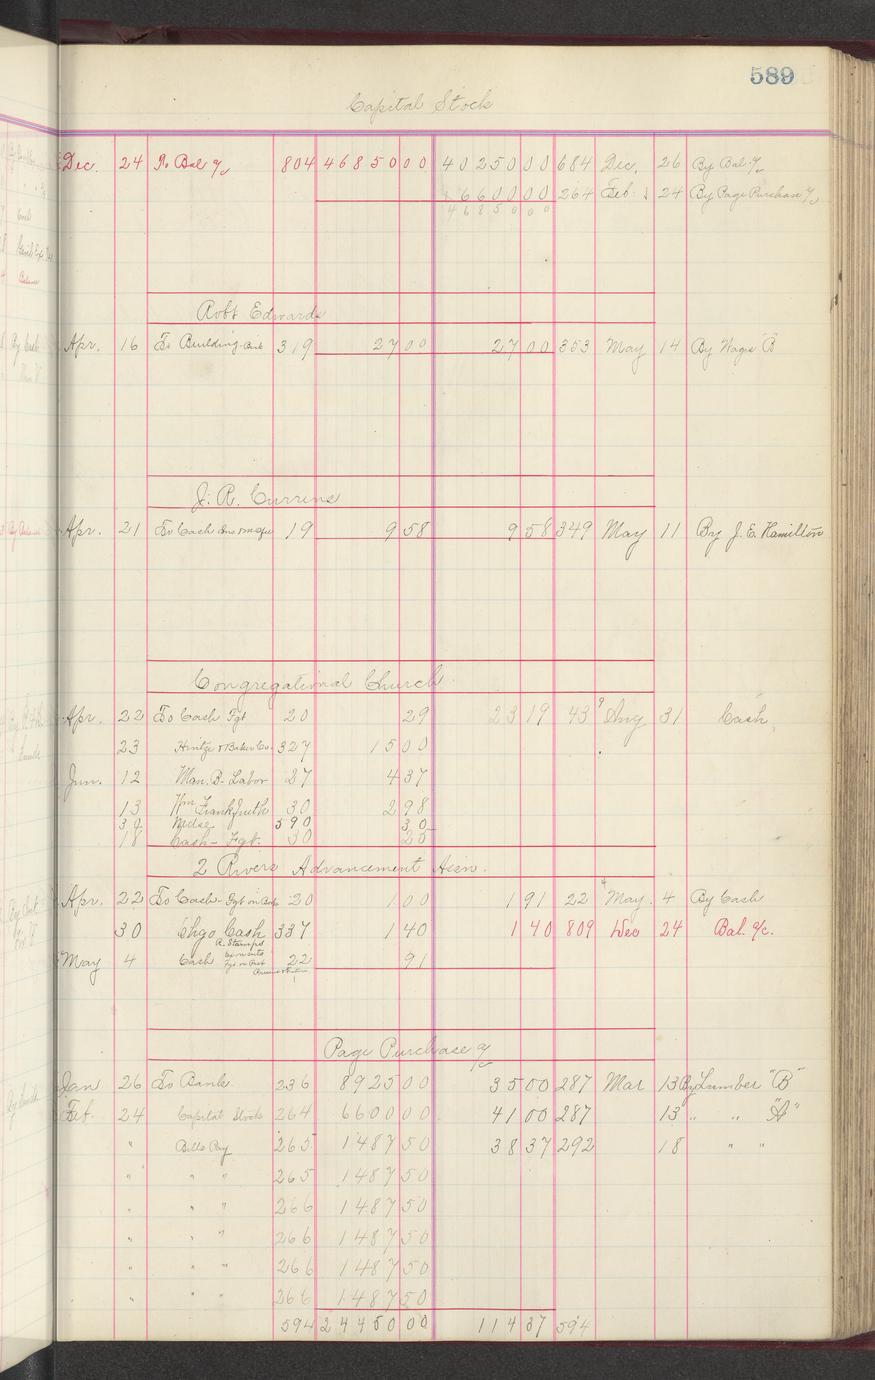 589
Capital Stock
Dec. 24 To Bal a/c 804 46850 00 40250 00 684 Dec. 26 By Bal a/c
6600 00 264 Feb. 24 By Page Purchase a/c
46850 00
Robt Edwards
Apr. 16 To Building 319 27 00 27 00 353 May 14 By Wages B
J. R. Currens
Apr. 21 To Cash 19 9 58 9 58 349 May 11 By J. E. Hamilton
Congregational Church
Apr. 22 To Cash Fgt 20 29 23 19 43 Aug 31 Cash
23 327 15 00
Jun. 12 Man. B- Labor 27 4 37
13 Wm 30 2 98
Mdse 590 30
18 Cash - Fgt. 30 25
2 Rivers Advancement Assn.
Apr. 22 To Cash - Fgt on 20 1 00 1 91 22 May 4 By Cash
30 Chgo Cash 337 1 40 1 40 809 Dec 24 Bal. a/c.
May 4 Cash 22 91
Page Purchase a/c
Jan 26 To Bank 236 8925 00 35 00 287 Mar 13 By Lumber "B"
Feb. 24 Capital Stock 264 6600 00 41 00 287 13 " " "A"
" Bills Pay 265 1487 50 38 37 292 18 " "
" " " 265 1487 50
" " " 266 1487 50
" " " 266 1487 50
" " " 266 1487 50
" " " 266 1487 50
594 24450 00 114 37 594